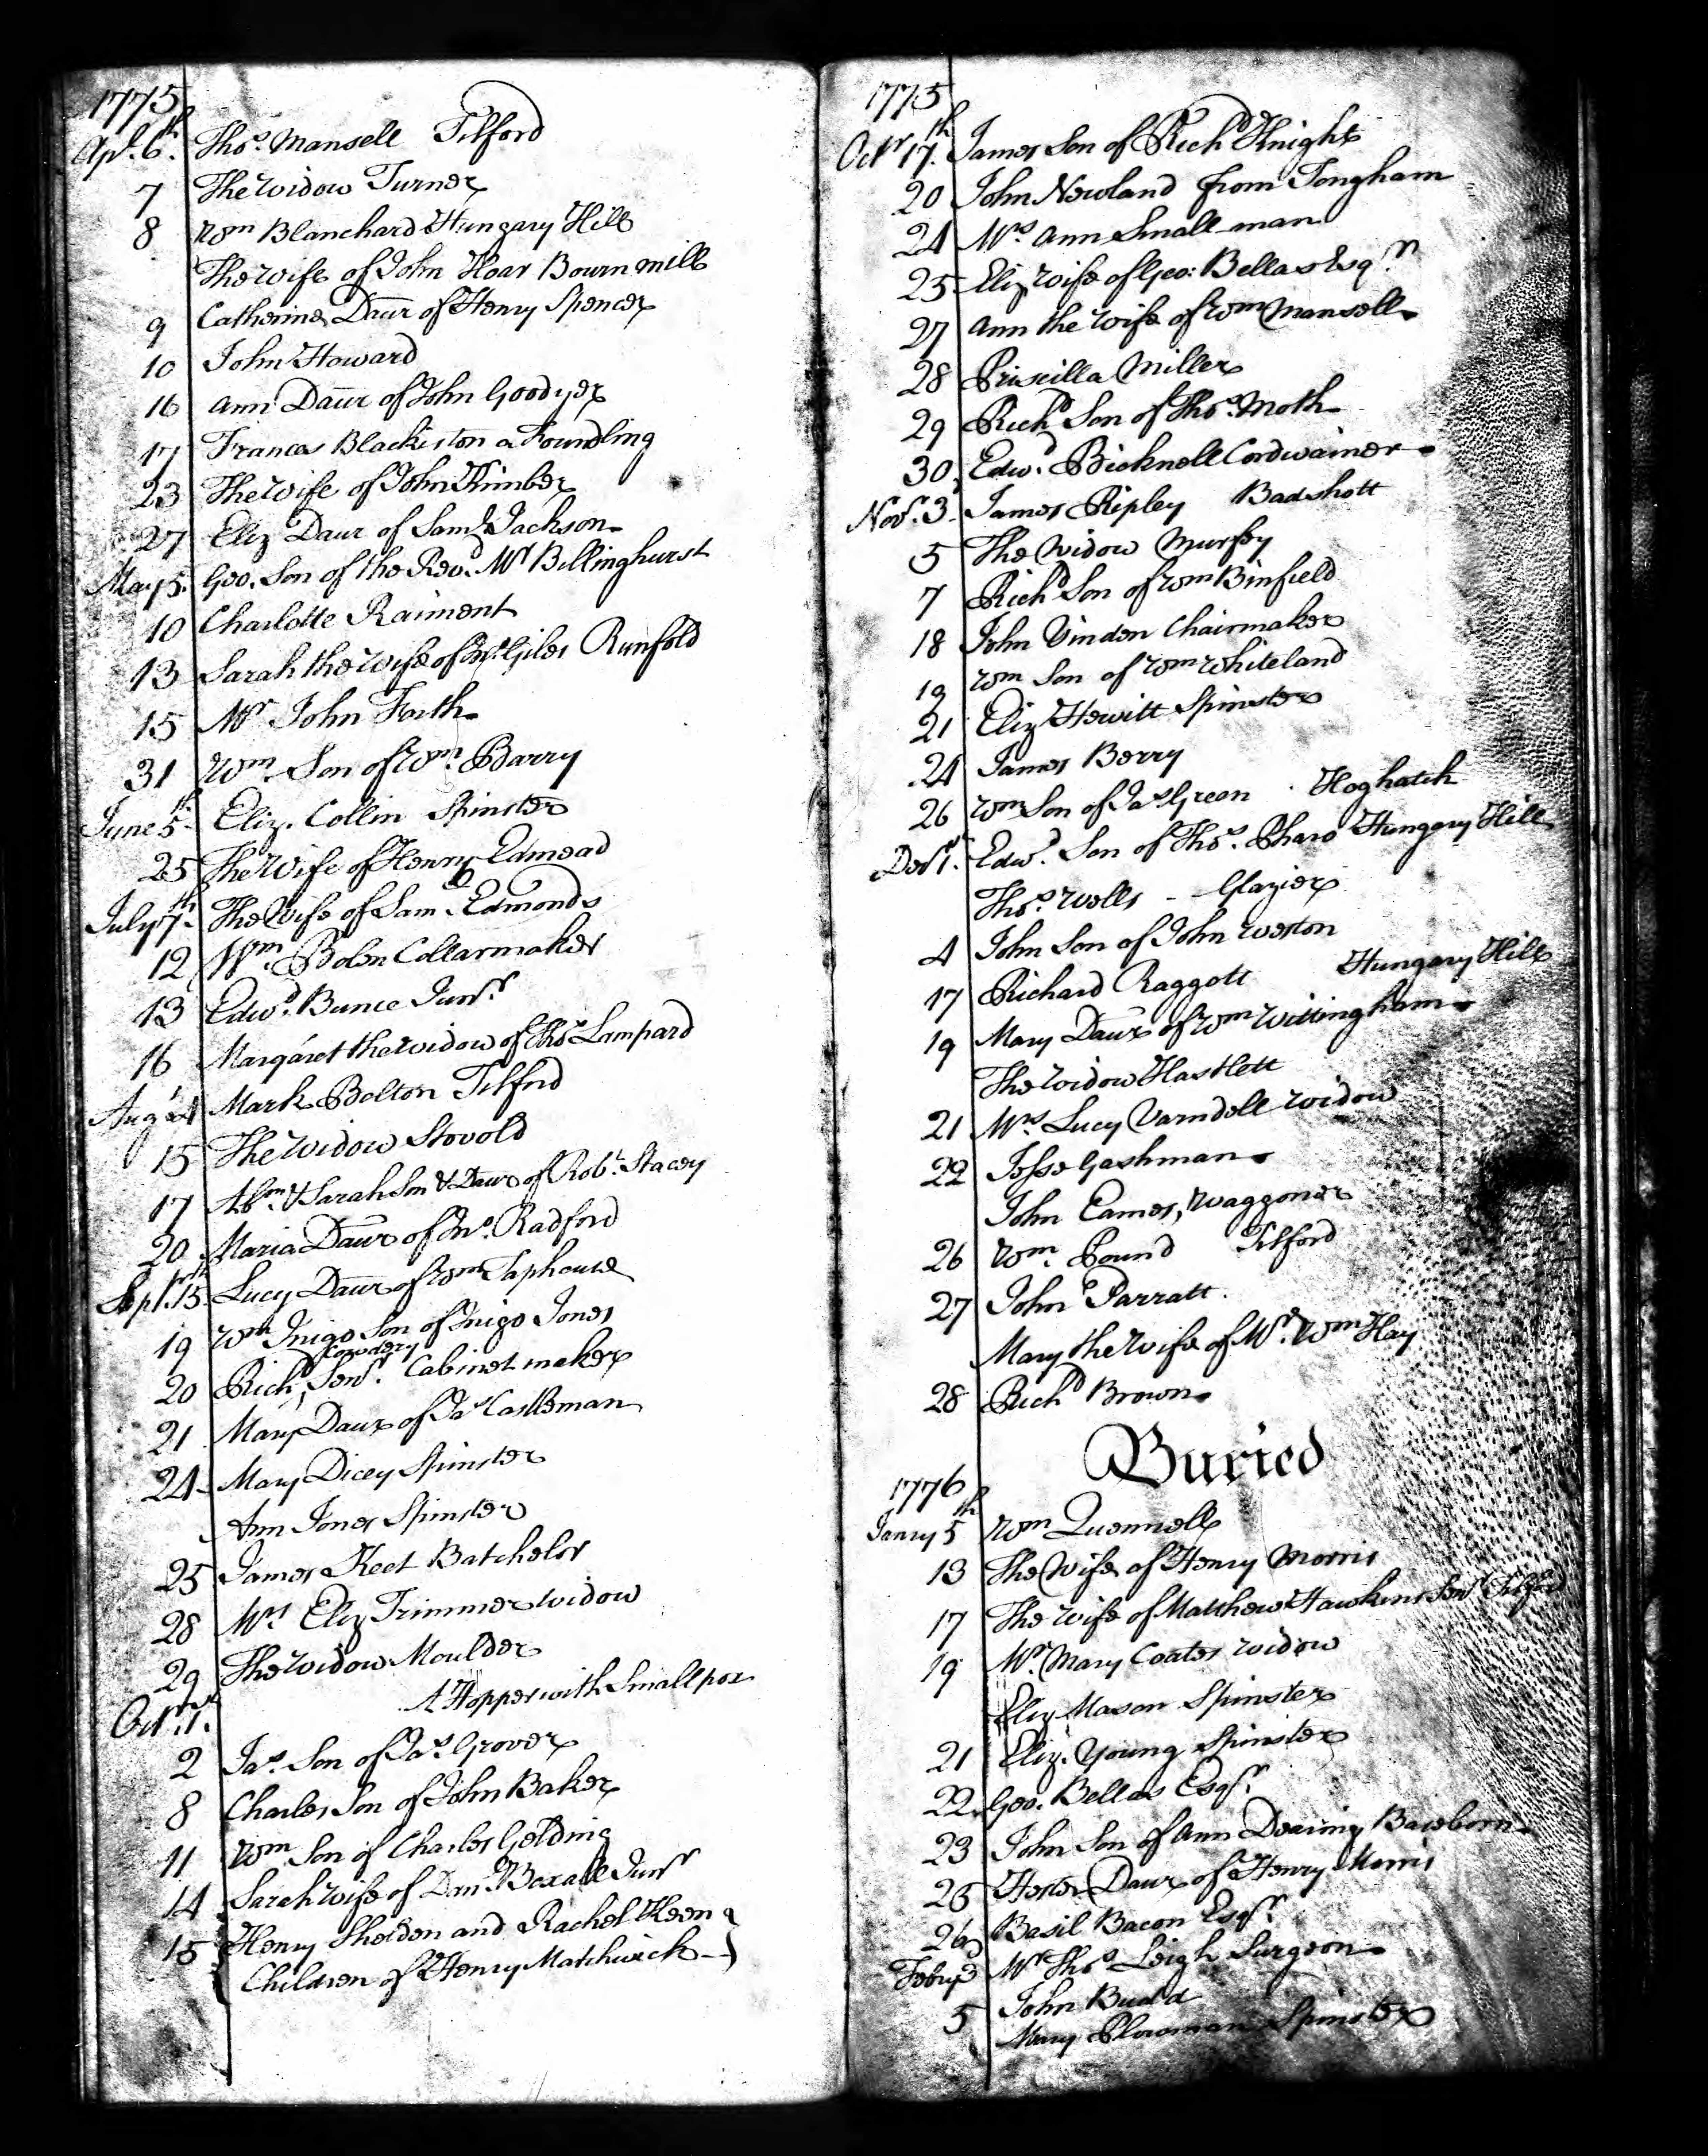 1775
Apl. 6th. Thos. Mansell Tilford
7 The Widow Turner
8 Wm Blanchard Hungary Hill
The Wife of John Hoar Bourn mill
9 Catherine Daur of Henry Spencer
10 John Howard
16 Ann Daur of John Goodyer
17 Frances Blackiston a Foundling
23 The Wife of John Kimber
27 Eliz Daur of Saml Jackson
May 5. Geo. Son of the Revd. Mr Billinghurst
10 Charlotte Raiment
13 Sarah the Wife of Mr. Giles Runfold
15 Mr John Forth
31 Wm Son of Wm. Barry
June 5th. Eliz. Collin Spinster
25 The Wife of Henry Edmead
July 7th. The Wife of Sam. Edmonds
12 Wm. Collarmaker
13 Edwd. Bunce Junr.
16 Margaret the widow of Thos Lampard
Augt 4 Mark Bolton Tilford
15 The Widow Stovold
17 Abm. & Sarah Son & Daur of Robt. Stacey
20 Maria Daur of Jno. Radford
Sept. 15th Lucy Daur of Wm Taphouse
19 Wm Inigo Son of Inigo Jones
Cowdery
20 Richd, Senr. Cabinet maker
21 Mary Daur of Jas Castleman
24 Mary Dicey Spinster
Ann Jones Spinster
25 James Keet Batchelor
28 Mrs Eliz Trimmer widow
29 The Widow Moulder
Octr. 1st. A Hopper with Small pox
2 Jas. Son of Jas. Grover
8 Charles Son of John Baker
11 Wm Son of Charles Golding
14 Sarah Wife of Danl Boxall Junr
15 Henry Sheldon and Rachel Keen
Children of Henry Matchwick
1775
Octr 17th. James Son of Richd Knight
20 John Newland from Tongham
24 Mrs Ann Small man
25 Eliz Wife of Geo: Bellas Esqr.
27 Ann the Wife of Wm Mansell
28 Priscilla Miller
29 Richd Son of Thos. Moth
30 Edwd. Bicknell Cordwainer
Novr. 3 James Ripley Badshott
5 The Widow Murfey
7 Richd Son of Wm Binfield
18 John Vinden Chairmaker
19 Wm Son of Wm Whiteland
21 Eliz Hewitt Spinster
24 James Berry
26 Wm Son of Jas Green Hoghatch
Decr 1st. Edwd. Son of Thos. Pharo Hungary Hill
Thos. Wells - Glazier
4 John Son of John Weston
17 Richard Raggott Hungary Hill
19 Mary Daur of Wm Wittingham
The Widow Hastlett
21 Mrs. Lucy Varndell Widow
22 Jesse Gashman
John Eames, Waggoner
26 Wm. Pound Tilford
27 John Parratt.
Mary the Wife of Mr. Wm Hay
28 Richd Brown
Buried
1776
Janry 5th Wm Quennell
13 The Wife of Henry Morris
17 The Wife of Matthew Hawkins Senr Tilford
19 Mrs. Mary Coates Widow
Eliz Mason Spinster
21 Eliz. Young Spinster
22 Geo. Bellas Esqr.
23 John Son of Ann Dearing Baseborn
25 Hester Daur of Henry Morris
26 Basil Bacon Esqr.
Febry 3 Mr Thos Leigh Surgeon
5 John Budd
Mary Plowman Spinster